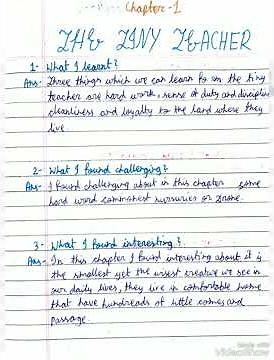 Chapter-1
THE TINY TEACHER
1- What I learnt?
Ans- Three things which we can learn from the tiny
teacher are hard work, sense of duty and discipline
cleanliness and loyalty to the land where they
live
2- What I found challenging?
Ans- I found challenging about in this chapter some
hard word commonest nursuries or Drone.
3- What I found interesting?
Ans- In this chapter I found interesting about it is
the smallest yet the wisest creature we see in
our daily lives, they live in comfortable home
that have hundreads of little comes and
passage.
Made with